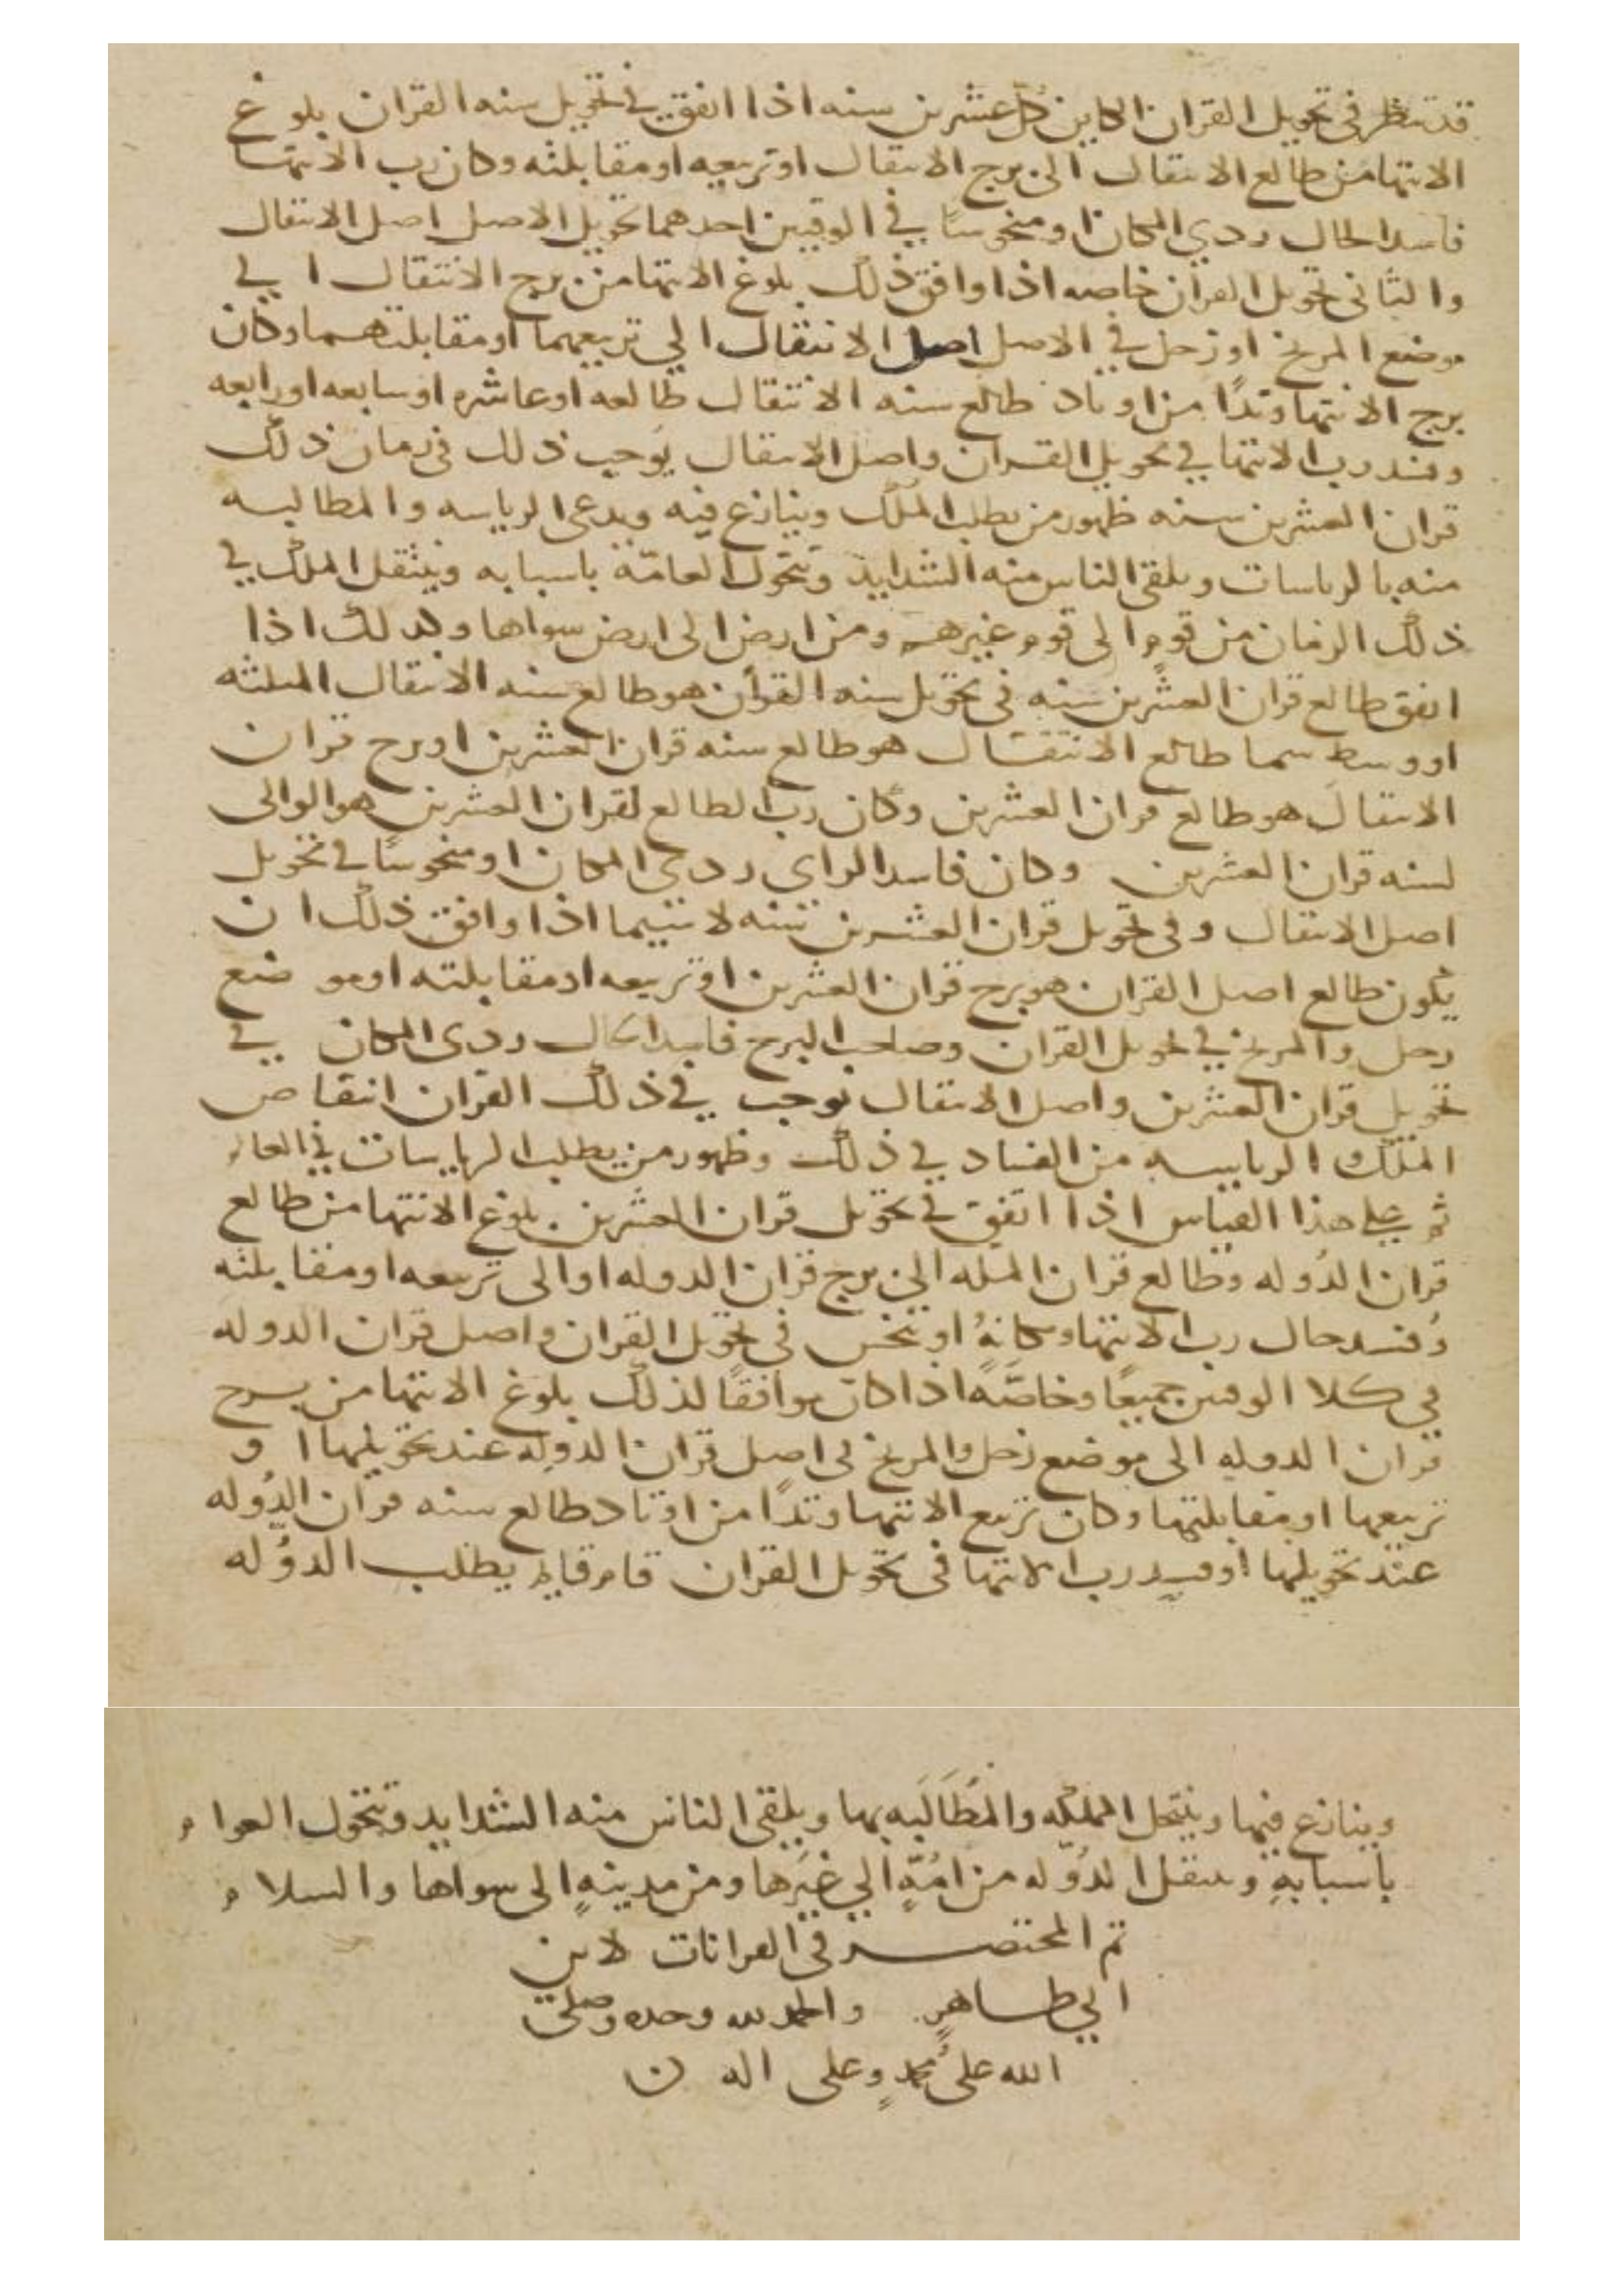 قد تنظر في تحويل القران الكاين كل عشرين سنه اذا اتفق في تحويل سنه القران بلوغ
الانتها من طالع الانتقال الى برج الانتقال او تربيعه او مقابلته وكان رب الانتها
فاسد الحال ردي المكان او منحوسًا في الوقتين احدهما تحويل الاصل اصل الانتقال
والثاني تحويل القران خاصه اذا وافق ذلك بلوغ الانتها من برج الانتقال الي
موضع المريخ او زحل في الاصل اصل الانتقال الي تربيعهما او مقابلتهما وكان
برج الانتها وتدًا من اوتاد طالع سنه الانتقال طالعه او عاشره او سابعه او رابعه
وفسد رب الانتها في تحويل القران واصل الانتقال يوجب ذلك في زمان ذلك
قران العشرين سنه ظهور من يطلب الملك وينازع فيه ويدعي الرياسه والمطالبه
منه بالرياسات ويلقى الناس منه الشدايد وتتحول العامّة باسبابه وينتقل الملك في
ذلك الزمان من قوم الى قوم غيرهم ومن ارض الى ارض سواها وكذلك اذا
اتفق طالع قران العشرين سنه في تحويل سنه القران هو طالع سنه الانتقال المثلثه
او وسط سما طالع الانتقال هو طالع سنه قران العشرين او برج قران
الانتقال هو طالع قران العشرين وكان رب الطالع لقران العشرين هو الوالى
لسنه قران العشرين وكان فاسد الراي ردي المكان او منحوسًا في تحويل
اصل الانتقال وفي تحويل قران العشرين سنه لا سيما اذا وافق ذلك ان
يكون طالع اصل القران هو برج قران العشرين او تربيعه او مقابلته او موضع
زحل والمريخ في تحويل القران وصاحب البرج فاسد الحال ردى المكان في
تحويل قران العشرين واصل الانتقال توجب في ذلك القران انتقاص
الملك الرياسه من الفساد في ذلك وظهور من يطلب الرياسات في العالم
ثم على هذا القياس اذا اتفق في تحويل قران العشرين بلوغ الانتها من طالع
قران الدُوله وطالع قران المله الى برج قران الدوله او الى تربيعه او مقابلته
وُفسد حال رب الانتها ومكانهُ او نحس في تحويل القران واصل قران الدوله
في كلا الوقتين جميعًا وخاصّةً اذا كان موافقًا لذلك بلوغ الانتها من برج
قران الدوله الى موضع زحل والمريخ في اصل قران الدوله عند تحويلها او
تربيعها او مقابلتها وكان تربيع الانتها وتدًا من اوتاد طالع سنه قران الدُوله
عند تحويلها او فسد رب الانتها في تحويل القران قام قايم يطلب الدوُله
وينازع فيها وينتحل المملكه والمُطَالَبَه بها ويلقى الناس منه الشدايد وتتحول العوام
باسبابهِ وينتقل الدُوله من امُةٍ الي غيَرها ومن مدينهٍ الى سواها والسلام
تم المختصر في القرانات لابن
ابي طاهرٍ والحمد لله وحده وصلى
الله على محمدٍ وعلى اله